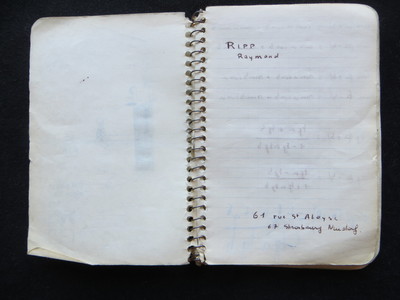 RIPP
Raymond
61 rue St Aloyse
67 Strasbourg Neudorf